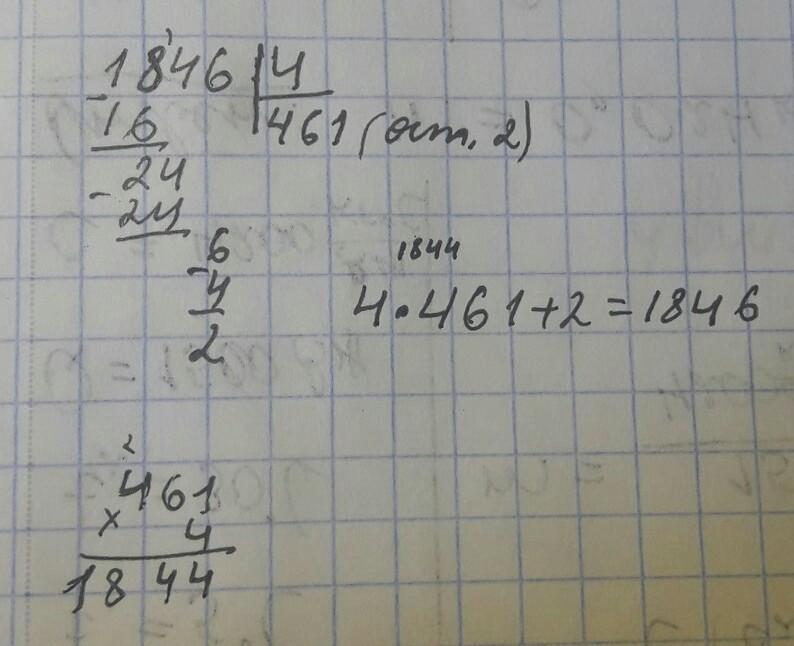 1846 | 4
- 16 | 461 (ост. 2)
- 24
24
6
- 4
2
1844
4 · 461 + 2 = 1846
2
461
× 4
1844